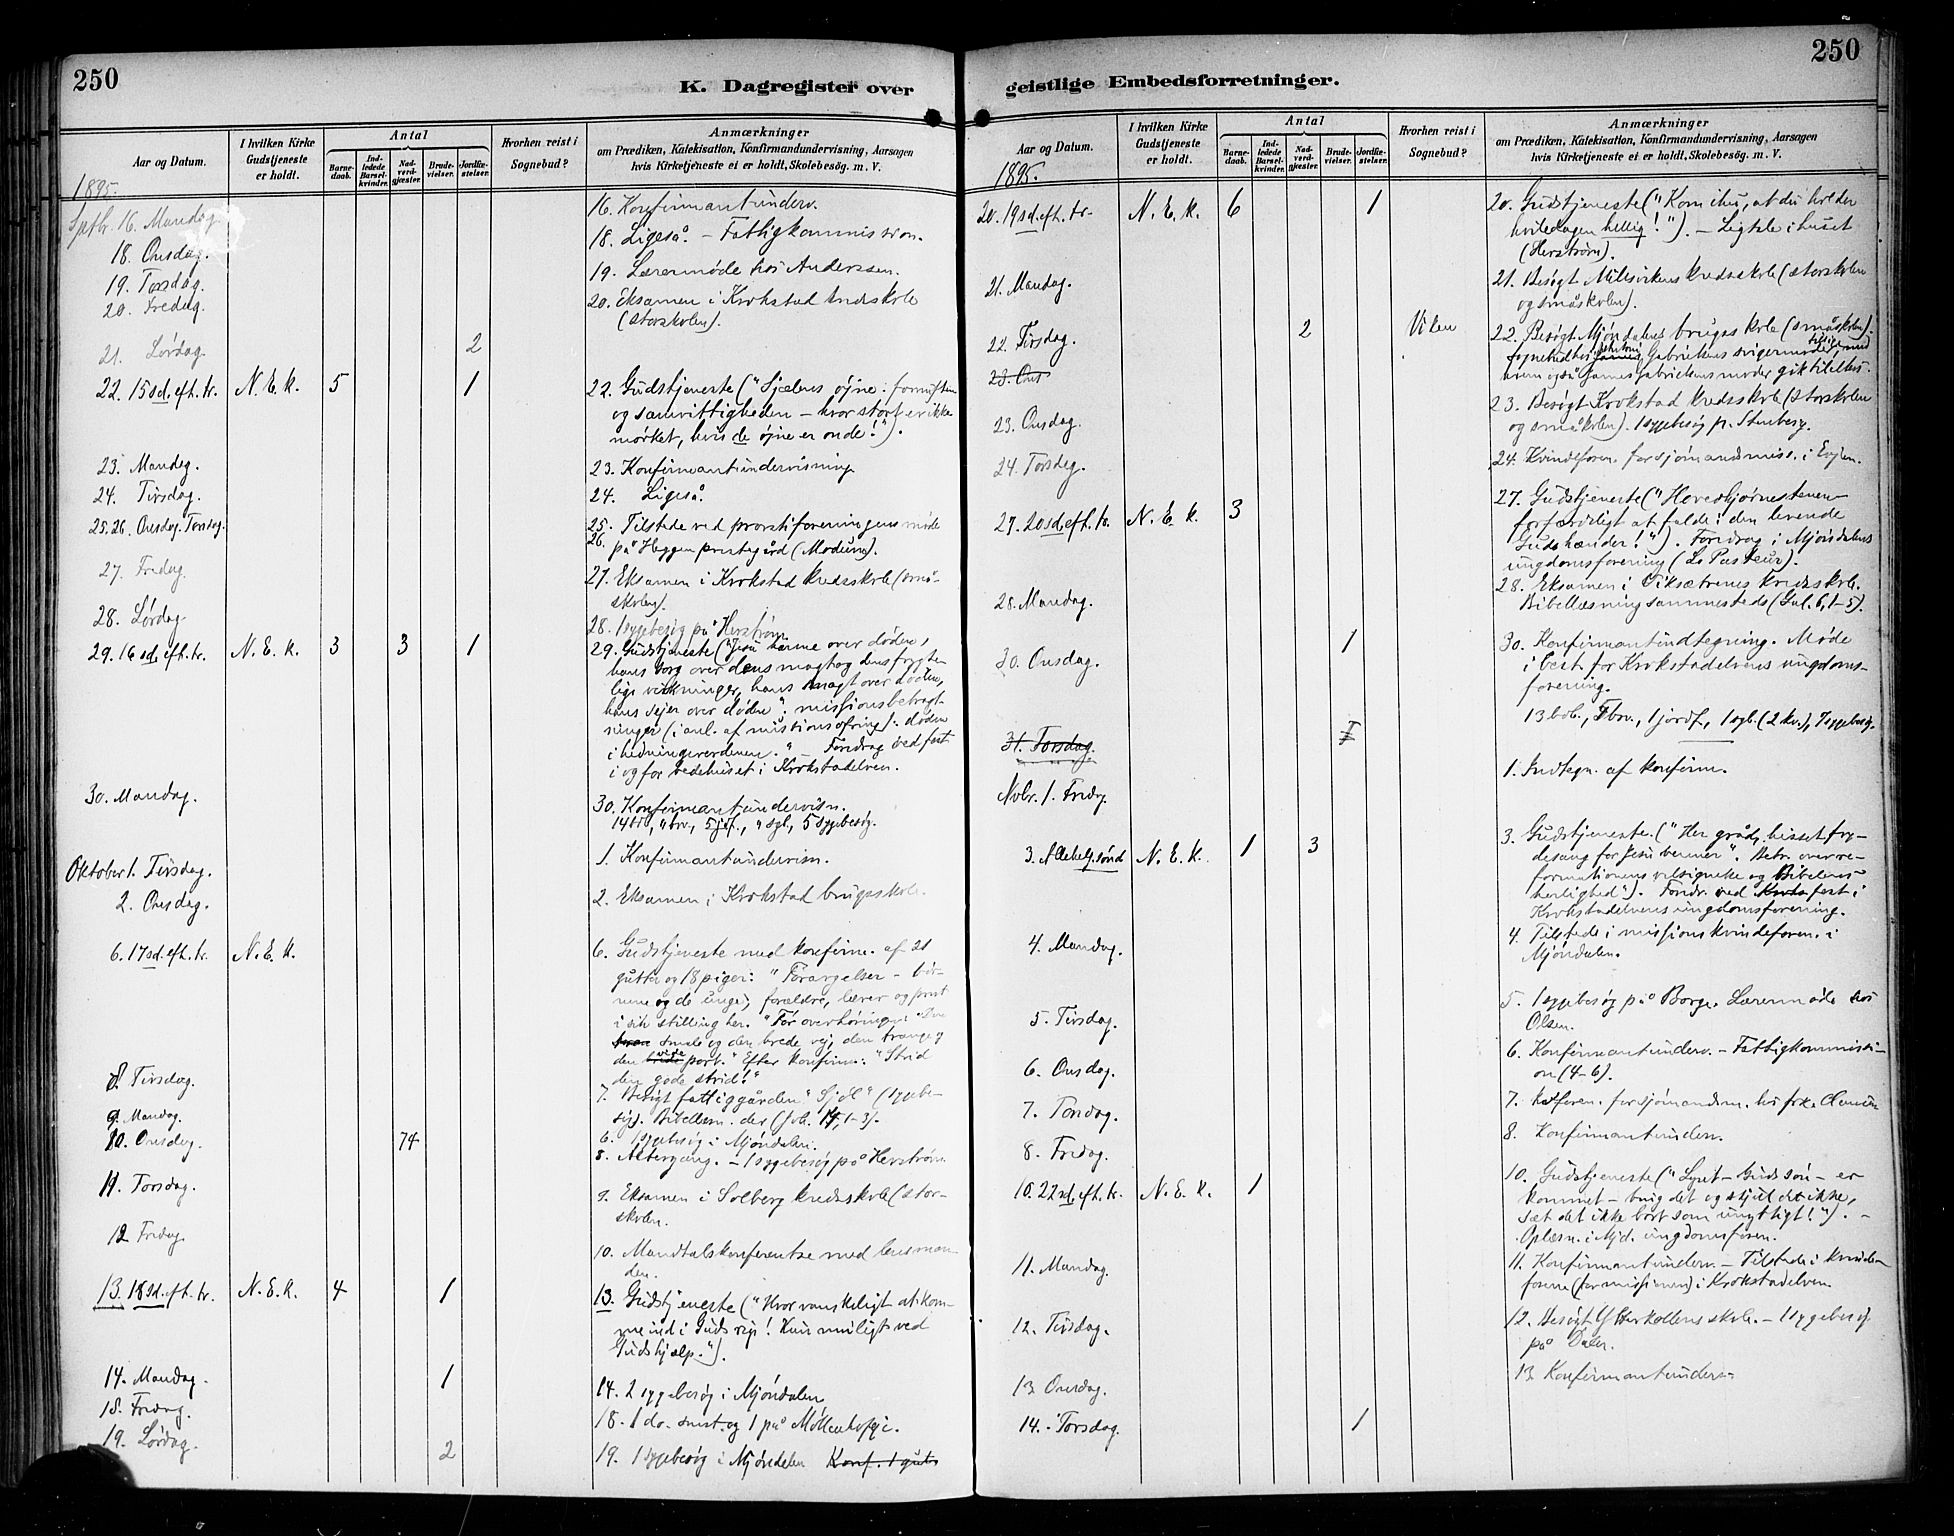 250
K. Dagregister over
Aar og Datum.
I hvilken Kirke Gudstjeneste er holdt.
Antal
Barnedaab.
Indledede Barselkvinder.
Nadverdgjæster.
Brudevielser.
Jordfæstelser.
Hvorhen reist i Sognebud?
Anmærkninger
om Prædiken, Katekisation, Konfirmandundervisning, Aarsagen
hvis Kirketjeneste ei er holdt, Skolebesøg. m. V.
1895.
Sptbr. 16. Mandag
16. Konfirmantunderv.
18. Onsdag.
18. Ligeså. – Fattigkommission.
19. Torsdag.
19. Lærermøde hos Anderssen.
20. Fredag.
20. Eksamen i Krokstad kredsskole
(storskolen).
21. Lørdag. 2
22. 15 sd. eft. tr. N. E. k. 5 1
22. Gudstjeneste ("Sjælens øjne: fornuften
og samvittigheden – hvor stort er ikke
mørket, hvis de øjne er onde!").
23. Mandag.
23. Konfirmantundervisning
24. Tirsdag.
24. Ligeså.
25. 26. Onsdag. Torsdag.
25. Tilstede ved provstiforeningens møde
26. på Heggen prestegård (Modum).
27. Fredag
27. Eksamen i Krokstad kredsskole (små-
skolen).
28. Lørdag
28. 1 sygebesøg på Herstrøm.
29. 16 sd. eft. tr. N. E. k. 3 3 1
29. Gudstjeneste ("Jesu harme over døden,
hans sorg over dens magt og dens frygte-
lige virkninger, hans magt over døden,
hans sejer over døden". missionsbetragt-
ninger (i anl. af missionsofring): døden
i hedningeverdenen." – Foredrag ved fest
i og for bedehuset i Krokstadelven.
30. Mandag.
30. Konfirmantundervisn.
5 sygebesøg.
Oktober 1. Tirsdag.
1. Konfirmantundervisn.
2. Onsdag.
2. Eksamen i Krokstad brugsskole.
6. 17 sd. eft. tr. N. E. k.
6. Gudstjeneste med konfirm. af 21
gutter og 18 piger: "Forargelser – bør-
nene og de unge, forældre, lærer og prest
i sin stilling her. "Før overhøringen: "Den
smale og den brede vej, den trange og
den vide port." Efter konfirm.: "Strid
den gode strid!"
8. Tirsdag.
7. Besøgt fattiggården "Sjøl" (sygebe-
søg). Bibellæsn. der (Joh. 14, 1-3).
9. Mandag.
6. 1 sygebesøg i Mjøndalen.
10. Onsdag. 74
8. Altergang. – 1 sygebesøg på Herstrøm
11. Torsdag.
9. Eksamen i Solberg kredsskole (stor-
skolen.
12 Fredag.
10. Mandtalskonferentse med lensman-
den.
13. 18 sd. eft. tr. N. E. k. 4 1
13. Gudstjeneste ("Hvor vanskeligt at kom-
me ind i Guds rige! Kun muligt ved
Guds hjælp.").
14. Mandag. 1
14. 2 sygebesøg i Mjøndalen
18. Fredag.
18. 1 do. smst. og 1 på Møllenhof
19. Lørdag. 2
19. 1 sygebesøg i Mjøndalen Konf. 1 gut
250
geistlige Embedsforretninger.
Aar og Datum.
I hvilken Kirke Gudstjeneste er holdt.
Antal
Barnedaab.
Indledede Barselkvinder.
Nadverdgjæster.
Brudevielser.
Jordfæstelser.
Hvorhen reist i Sognebud?
Anmærkninger
om Prædiken, Katekisation, Konfirmandundervisning, Aarsagen
hvis Kirketjeneste ei er holdt, Skolebesøg. m. V.
1895.
20. 19 sd. eft. tr. N. E. k. 6 1
20. Gudstjeneste ("Kom ihu, at du holder
hviledagen hellig!"). – Ligtale i huset
(Herstrøm).
21. Mandag.
21. Besøgt Milesvikens kredsskole (storskolen
og småskolen).
22. Tirsdag. 2 Viken
22. Besøgt Mjøndalens brugsskole (småskolen).
Gabrielsens svigermoder
23. Ons
23. Onsdag.
23. Besøgt Krokstad kredsskole (storskolen
og småskolen). 1 sygebesøg p. Stenberg.
24. Torsdag.
24. Kvindeforen. for sjømandsmiss. i Evjen.
27. 20 sd. eft. tr. N. E. k. 3
27. Gudstjeneste ("Hovedhjørnestenen
forfærdeligt at falde i den levende
Guds hænder!"). Foredrag i Mjøndalens
ungdomsforening (L. Pasteur).
28. Mandag.
28. Eksamen i Viksætrenes kredsskole.
Bibellæsning sammesteds (Gal. 6, 1-5).
30. Onsdag. 1
30. Konfirmantindtegning. Møde
i best. for Krokstadelvens ungdoms-
forening.
31. Torsdag.
13 døb., 1 jordf.,
Nvbr. 1. Fredag
1. Indtegn. af konfirm.
3. Allehelg.sønd N. E. k. 1 3
3. Gudstjeneste. ("Her gråd, hisset fry-
desang for Jesu venner". Betr. over re-
formationens velsignelse og Bibelens
herlighed"). Foredr. ved fest i
Krokstadelvens ungdomsforening.
4. Mandag.
4. Tilstede i missionskvindeforen. i
Mjøndalen.
5. Tirsdag.
5. 1 sygebesøg på Borge. Lærermøde hos
Olsen.
6. Onsdag.
6. Konfirmantunderv. – Fattigkommissi-
on (4-6).
7. Torsdag.
7. kvforen. for sjømandsm. hos frk.
8. Fredag.
8. Konfirmantunderv.
10. 22 sd. eft. tr. N. E. k. 1
10. Gudstjeneste ("Lyset – Guds søn – er
kommet – brug det og skjul det ikke,
sæt det ikke bort som unyttigt!"). –
Oplæsn. i Mjd. ungdomsforen.
11. Mandag.
11. Konfirmantunderv. – Tilstede i kvinde-
foren (for missionen) i Krokstadelven
12. Tirsdag.
12. Besøgt skole. – 1 sygebesøg
på Daler.
13 Onsdag.
13 Konfirmantunderv.
14. Torsdag. 1